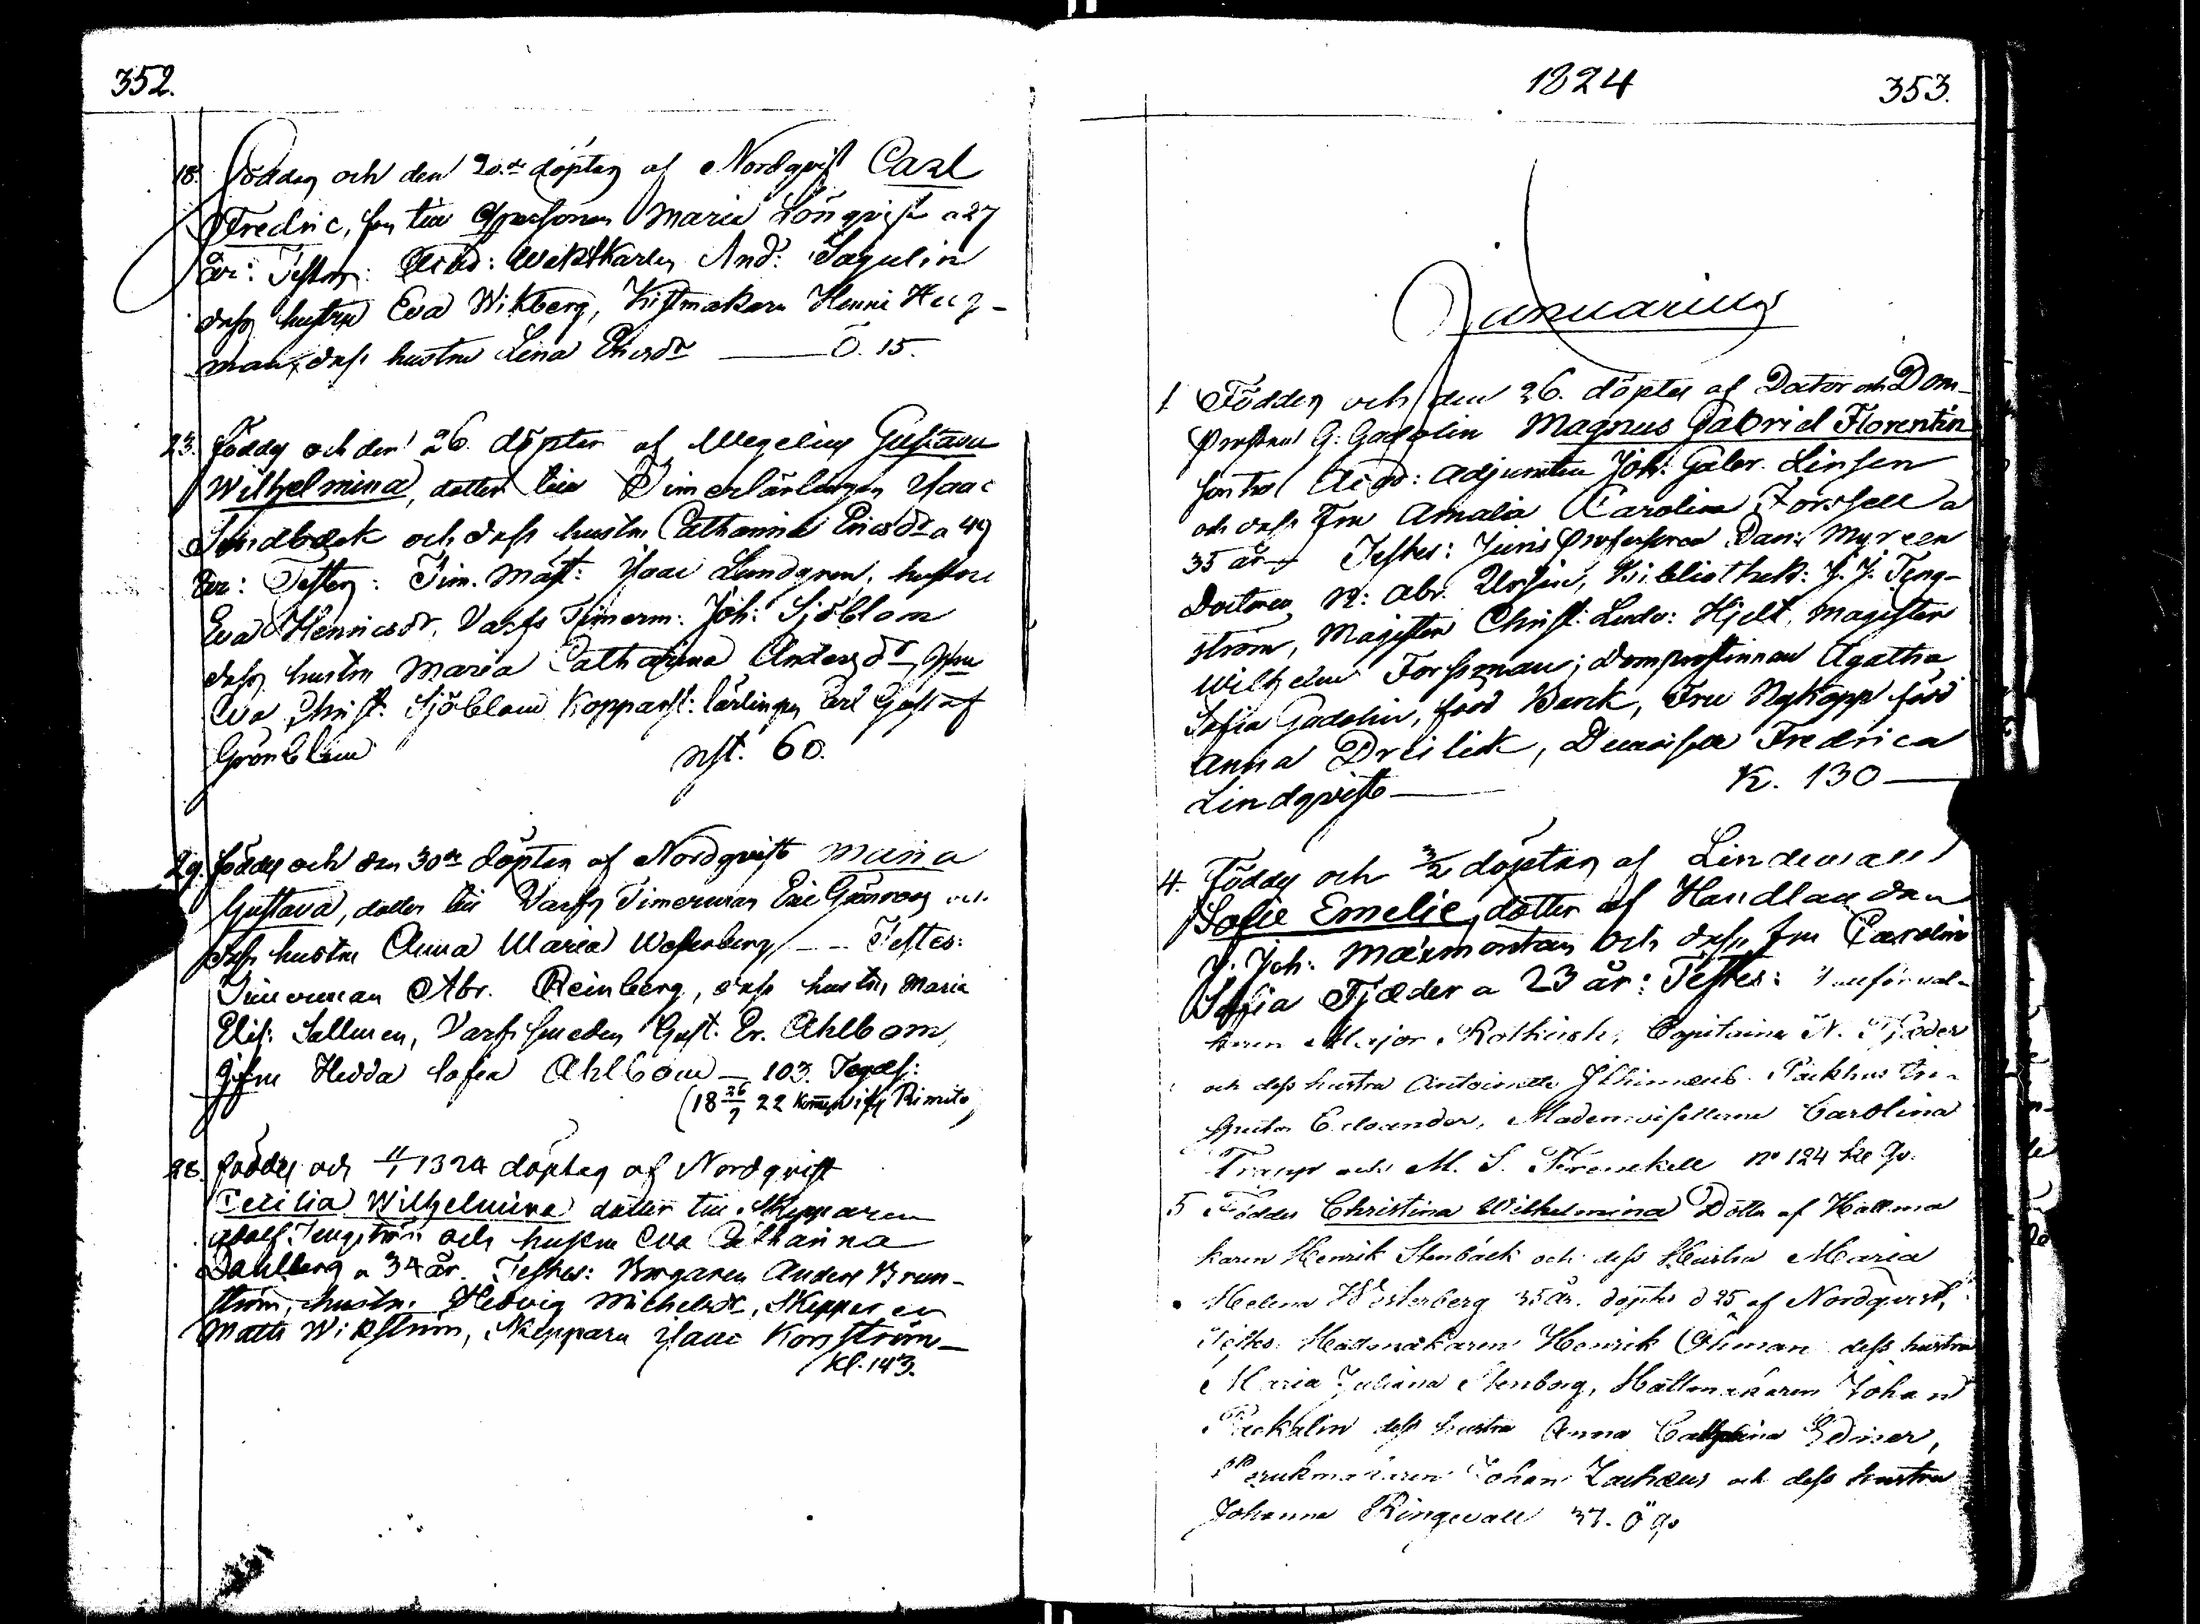 352.
18. Föddes och den 20.de döptes af Nordqvist Carl
Fredric, son till Maria Lönqvist a 27
år: Testes: Acad: Waktkarlen And: Sagulin
dess hustru Eva Wikberg, Kistmakare Henric Heng-
man, dess hustru Lena Ericsdr Ö. 15.
23. föddes och den 26. döptes af Wegelius Gustava
Wilhelmina, dotter till Timerlärlingen Isaac
Sundbäck och dess hustru Catharina Ericsdr a 49
år: Testes: Tim. Mäst: Isaac Lundgren, hustru
Eva Henricsdr, Varfs Timerm: Joh: Sjöblom
dess hustru Maria Catharina Andersdr,
Eva Christ: Sjöblom Kopparsl: lärlingen Carl Gustaf
Grönblom nst. 60.
29. föddes och den 30de döptes af Nordqvist Maria
Gustava, dotter till Varfs Timerman Eric Grönroos och
dess hustru Anna Maria Westerberg -- Testes:
Timerman Abr. Reinberg, dess hustru Maria
Elis: Sallmen, Varfs smeden Gust. Er. Ahlbom,
Hedda Sofia Ahlbom — 103.
(18 26/7 22 Rimito)
28. föddes och 11/1 1824 döptes af Nordqvist
Cecilia Wilhelmina dotter till Skepparen
Adolf Tengström och hustru Eva Catharina
Dahlberg a 34 år. Testes: Borgaren Anders Brun-
ström, hustru Hedvig Michelsdr, Skepparen
Matts Wikström, Skepparen Isaac Korsström —
Kl. 143.
1824 353.
Januarius
1. Föddes och den 26. döptes af Doctor och Dom-
Prosten G: Gadolin Magnus Gabriel Florentin
son till Acad: Adjuncten Joh: Gabr. Linsen
och dess Fru Amalia Carolina Forssell a
35 år — Testes: Juris Professoren Dan: Myreen
Doctoren N: Abr. Ursin, Bibliothek: J. J. Teng-
ström, Magister Christ: Ludv: Hjelt, Magister
Wilhelm Forssman; Domprostinnan Agatha
Sofia Gadolin, född Banck, Fru Nykopp född
Anna Dreilick, Demoiselle Fredrica
Lindqvist — K. 130 —
4. Föddes och 3/2 döptes af Lindeman
Sofie Emelie, dotter af Handlanden
J. Joh. Marmontan och dess fru Carolina
Sofia Tjæder a 23 år: Testes:
haren Major Rothkirch, Capitaine N. Tjæder
och dess hustru Antoinette Packhus In-
spector Mademoisellerna Carolina
Trapp och M. S. Frenckell No 124 Kl Go.
5 Föddes Christina Wilhelmina Dotter af Hattma
karen Henrik Stenbäck och dess Hustru Maria
Helena Westerberg 35 år. döptes d 25 af Nordqvist,
Testes Hattmakaren Henrik Öhman dess hustru
Maria Juliana Stenborg, Hattmakaren Johan
dess hustru Anna Catharina Ediner,
Perukmakaren Johan Zachæus och dess hustru
Johanna Ringevall 37. Ö Go